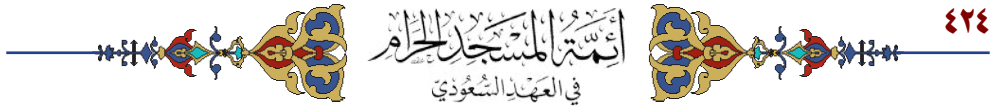 ٤٢٤
أَئِمَّةُ المَسْجِدِ الحَرَامِ
فِي العَهْدِ السُّعُودِيّ